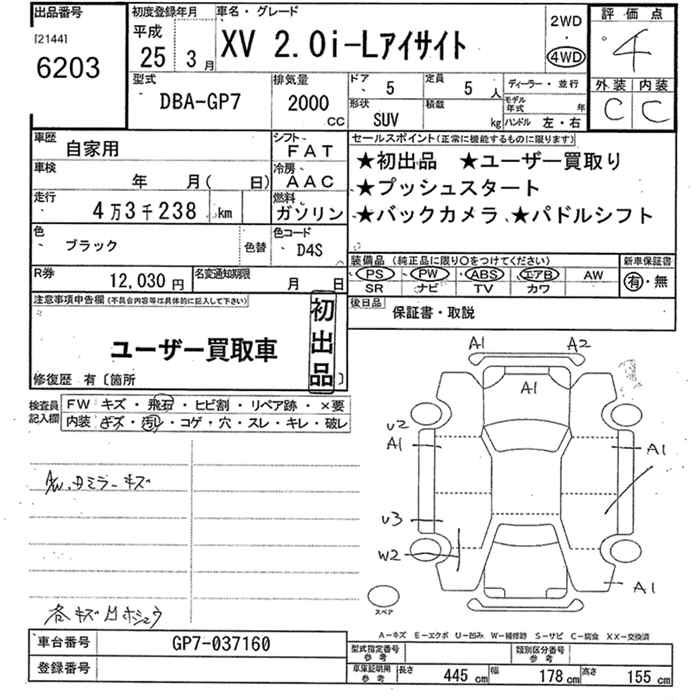 出品番号
[2144]
6203
初度登録年月
平成
25
3月
車名・グレード
XV 2.0i-Lアイサイト
2WD
・
4WD
評価点
4
外装 内装
C C
型式
DBA-GP7
排気量
2000
CC
ドア 5
定員 5 人
ディーラー・並行
形状
SUV
積載
kg
モデル年式
年
ハンドル 左・右
車歴
自家用
シフト
FAT
車検
年 月( 日)
冷房
AAC
走行
4万3千238 km
燃料
ガソリン
色
ブラック
色替
色コード
D4S
R券
12,030円
名変通知期限
月 日
セールスポイント(正常に機能するものに限ります)
★初出品 ★ユーザー買取り
★プッシュスタート
★バックカメラ ★パドルシフト
装備品 (純正品に限り○をつけてください)
PS PW ABS エアB AW
SR ナビ TV カワ
新車保証書
有・無
後日品
保証書・取説
注意事項申告欄(不具合内容等は具体的に記入して下さい)
初出品
ユーザー買取車
修復歴 有〔箇所 〕
検査員記入欄
FW キズ・飛石・ヒビ割・リペア跡・×要
内装 キズ・汚レ・コゲ・穴・スレ・キレ・破レ
ミラーキズ
各キズ凹ホシュウ
A1
A2
A1
U2
A1
A1
U3
W2
A1
スペア
A-キズ E-エクボ U-凹み W-補修跡 S-サビ C-腐食 XX-交換済
車台番号
GP7-037160
登録番号
型式指定番号
参考
類別区分番号
参考
車庫証明用
参考
長さ 445 cm
幅 178 cm
高さ 155 cm